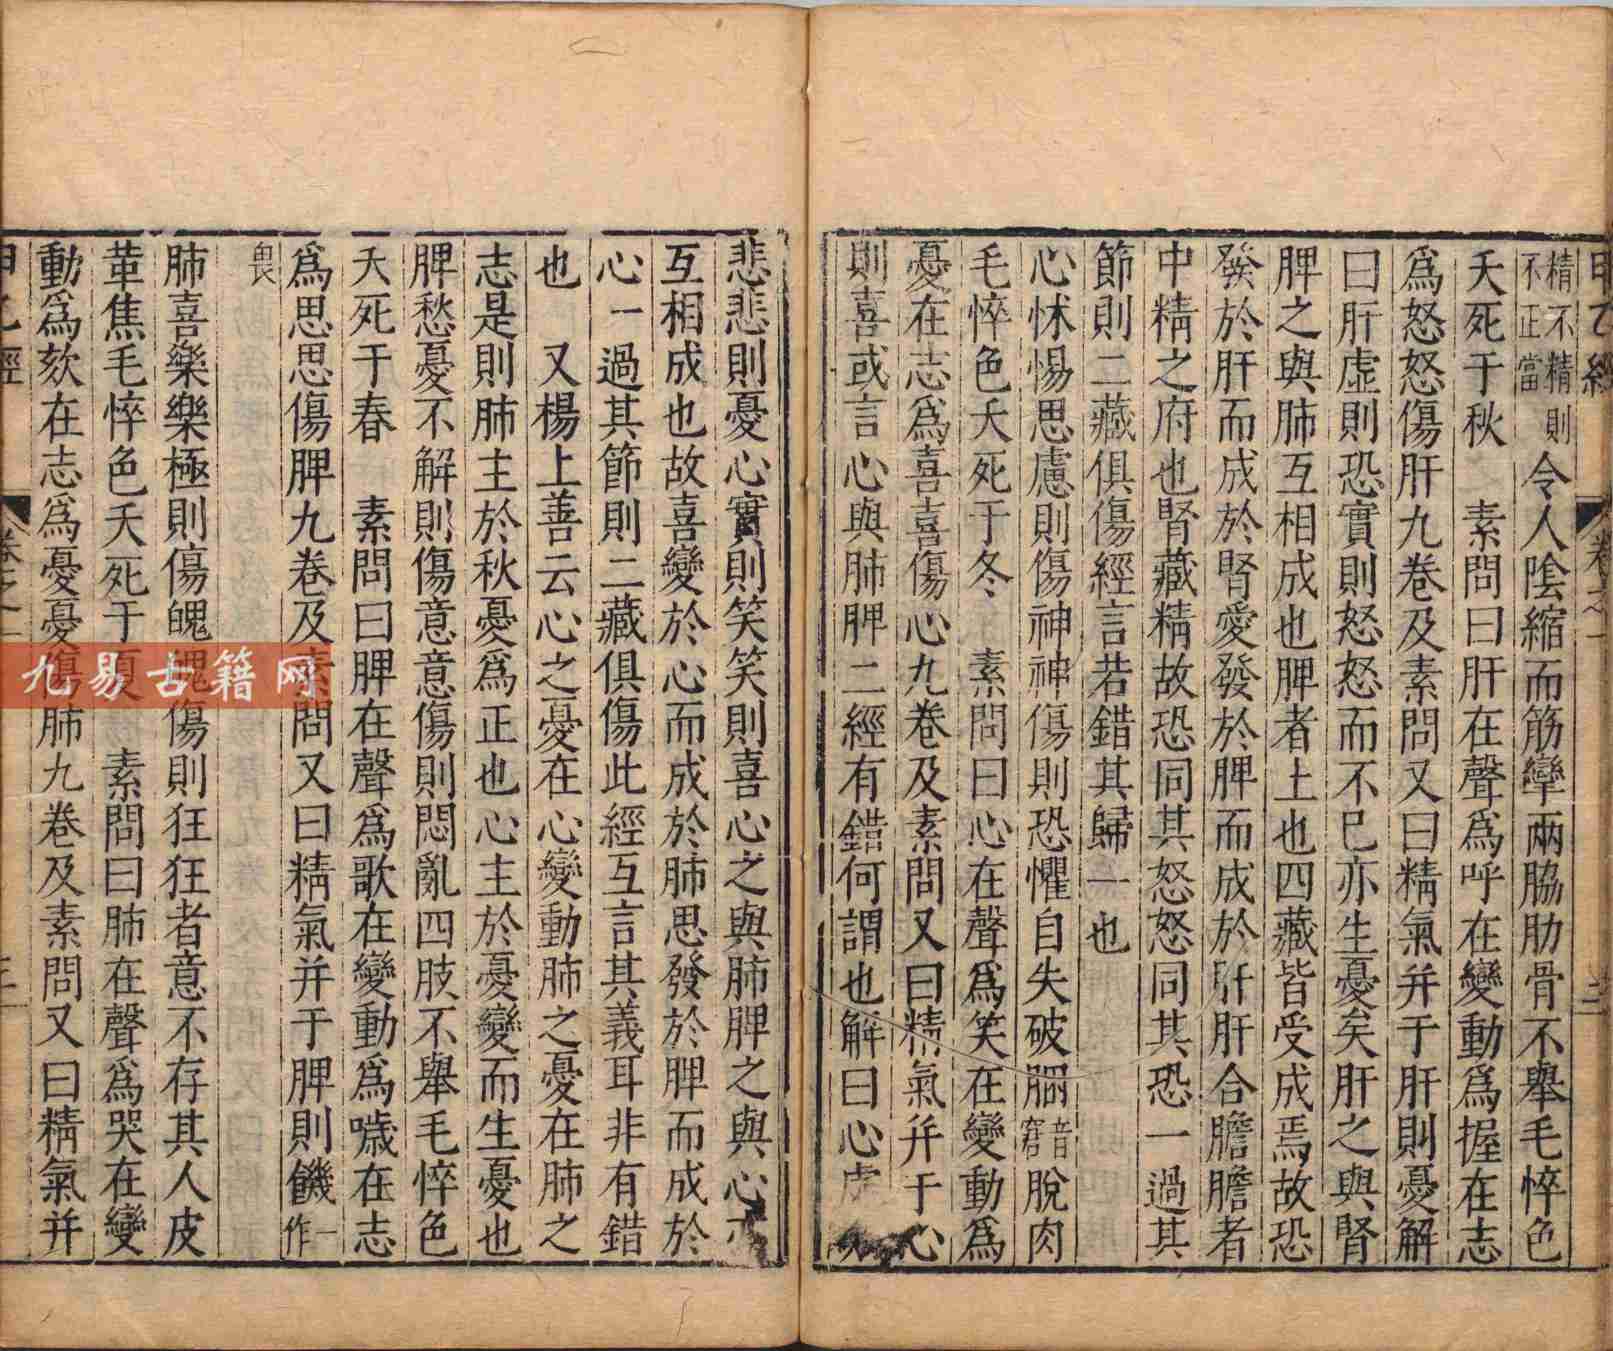 甲乙經 卷之一 二
精不精則不正當令人陰縮而筋攣兩脇肋骨不舉毛悴色
夭死于秋 素問曰肝在聲爲呼在變動爲握在志
爲怒怒傷肝九卷及素問又曰精氣并于肝則憂解
曰肝虛則恐實則怒怒而不已亦生憂矣肝之與腎
脾之與肺互相成也脾者土也四藏皆受成焉故恐
發於肝而成於腎愛發於脾而成於肝肝合膽膽者
中精之府也腎藏精故恐同其怒怒同其恐一過其
節則二藏俱傷經言若錯其歸一也
心怵惕思慮則傷神神傷則恐懼自失破䐃音窘脫肉
毛悴色夭死于冬 素問曰心在聲爲笑在變動爲
憂在志爲喜喜傷心九卷及素問又曰精氣并于心
則喜或言心與肺脾二經有錯何謂也解曰心虛則
悲悲則憂心實則笑笑則喜心之與肺脾之與心
互相成也故喜變於心而成於肺思發於脾而成於
心一過其節則二藏俱傷此經互言其義耳非有錯
也 又楊上善云心之憂在心變動肺之憂在肺之
志是則肺主於秋憂爲正也心主於憂變而生憂也
脾愁憂不解則傷意意傷則悶亂四肢不舉毛悴色
夭死于春 素問曰脾在聲爲歌在變動爲噦在志
爲思思傷脾九卷及素問又曰精氣并于脾則饑一作
畏
肺喜樂樂極則傷魄魄傷則狂狂者意不存其人皮
革焦毛悴色夭死于夏 素問曰肺在聲爲哭在變
動爲欬在志爲憂憂傷肺九卷及素問又曰精氣并
甲乙經 卷之一 三
九易古籍网